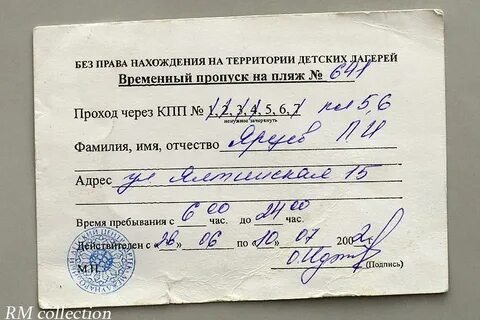 БЕЗ ПРАВА НАХОЖДЕНИЯ НА ТЕРРИТОРИИ ДЕТСКИХ ЛАГЕРЕЙ
Временный пропуск на пляж № 641
Проход через КПП № 1, 2, 3, 4, 5, 6, 7 пл 5,6
ненужное зачеркнуть
Фамилия, имя, отчество П.И
Адрес ул Ялтинская 15
Время пребывания с 6 00 час. до 24 00 час.
Действителен с «28» 06 по «10» 07 2002г.
М.П.
(Подпись)
RM collection